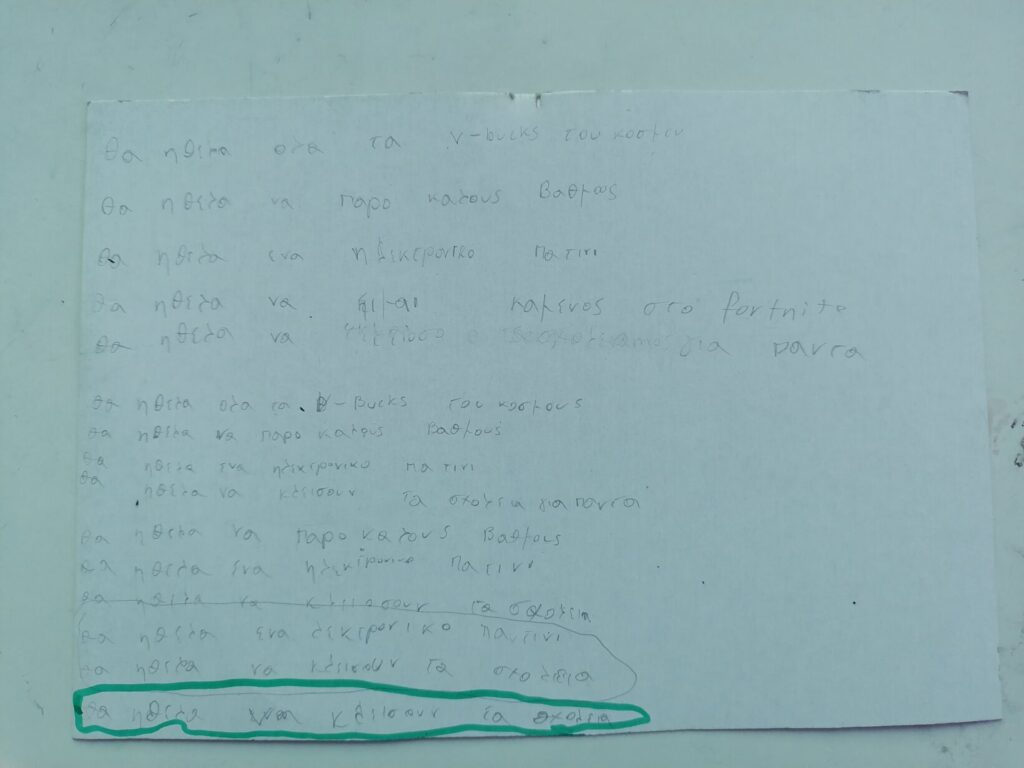 θα ηθελα ολα τα v-bucks του κοσμου
θα ηθελα να παρο καλους βαθμως
θα ηθελα ενα ηλεκτρονικο πατινι
θα ηθελα να ειμαι παμενος στο fortnite
θα ηθελα να για παντα
θα ηθελα ολα τα v-Bucks του κοσμους
θα ηθελα να παρο καλους βαθμους
θα ηθελα ενα ηλεκτρονικο πατινι
θα ηθελα να κλεισουν τα σχολεια για παντα
θα ηθελα να παρο καλους βαθμους
θα ηθελα ενα ηλεκτρονικο πατινι
θα ηθελα να κλειασουν τα σχολεια
θα ηθελα ενα λεκτρονικο παυτινι
θα ηθελα να κλεισουν τα σχολεια
θα ηθελα να κλεισουν τα σχολεια